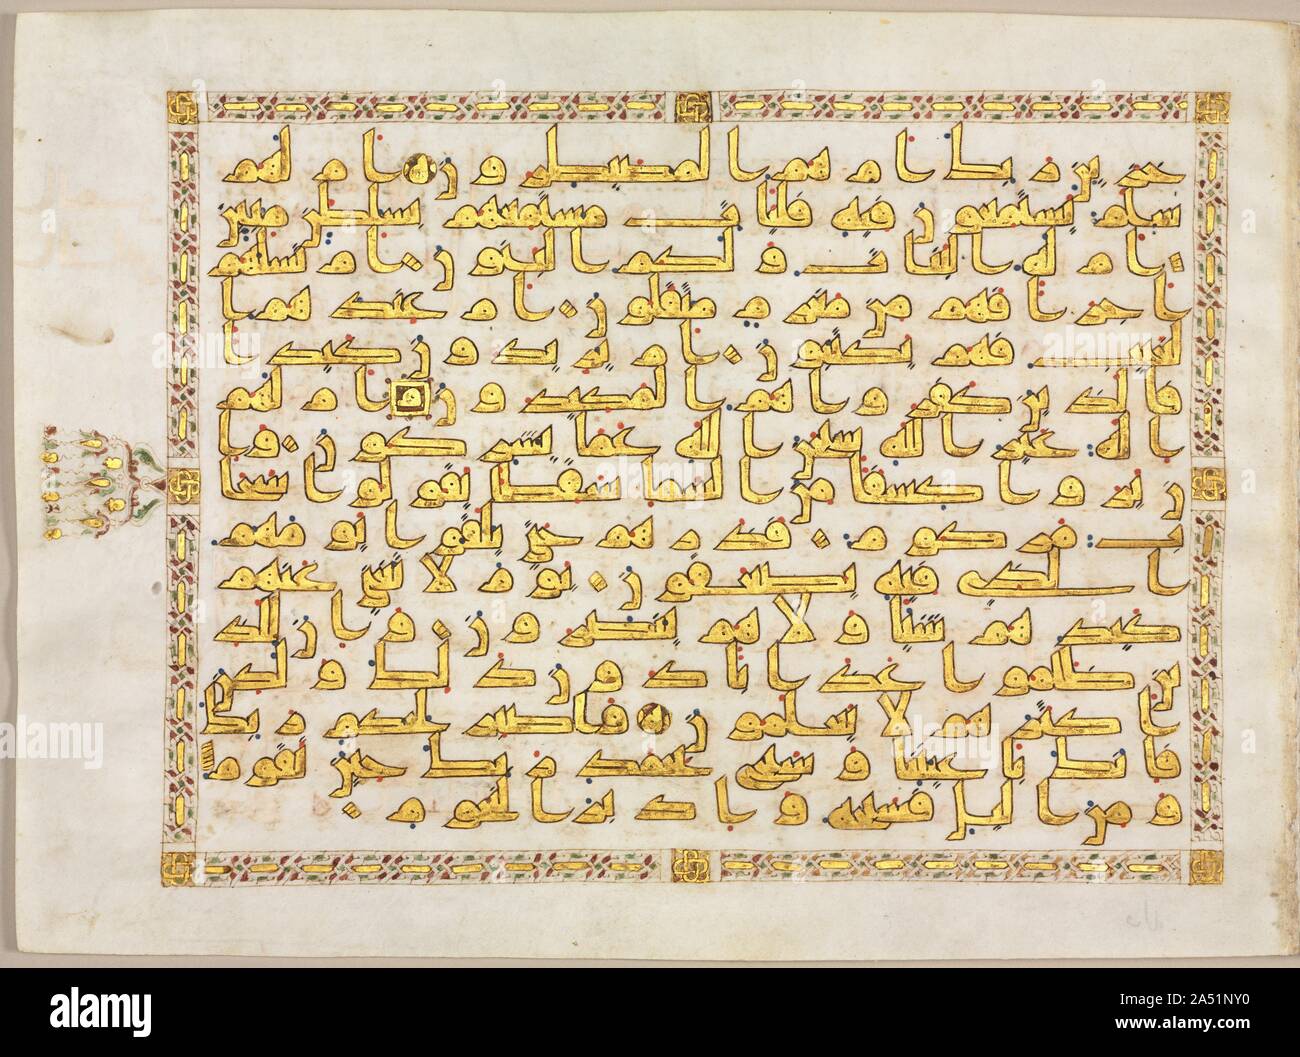 خزين ربك ام هم المصيطرون ام لهم
سلم يستمعون فيه فليات مستمعهم بسلطن مبيـ
ـن ام له البنت ولكم البنون ام تسلهم
اجرا فهم من مغرم مثقلون ام عندهم ا
لغيب فهم يكتبون ام يريدون كيدا
فالذين كفروا هم المكيدون ام لهم
اله غير الله سبحن الله عما يشركون وا
ن يروا كسفا من السما سقطا يقولوا سحا
ب مركوم فذرهم حتي يلقوا يومهم
الذي فيه يصعقون يوم لا يغني عنهم
كيدهم شيا ولا هم ينصرون وان للذ
ين ظلموا عذابا دون ذلك ولكن
اكثرهم لا يعلمون واصبر لحكم ربك
فانك باعيننا وسبح بحمد ربك حين تقوم
ومن اليل فسبحه وادبر النجوم
alamy
Image ID: 2A51NY0
www.alamy.com